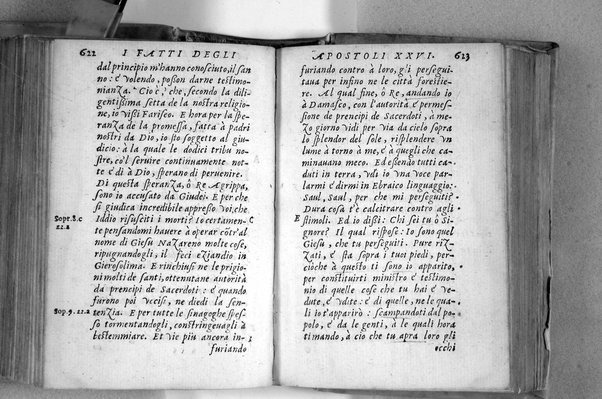 622 I FATTI DEGLI
dal principio m'hanno conosciuto, il san
no: è volendo, posson darne testimo-
nianza. Cio è, che, secondo la dili
gentissima setta de la nostra religio-
ne, io vissi Fariseo. E hora per la spe-
ranza de la promessa, fatta à padri
nostri da Dio, io sto soggetto al giu-
dicio: à la quale le dodici tribu no-
stre, co'l seruire continuamente not-
te è di à Dio, sperano di peruenire.
Di questa speranza, ò Re Agrippa,
sono io accusato da Giudei. E per che
si giudica incredibile appresso voi, che
Sopr.8.c
Iddio risusciti i morti? Io certamen- C
22.a
te pensandomi hauere à operar còtr'al
nome di Giesu Nazareno molte cose,
ripugnandogli, il feci eziandio in
Gierosolima. E rinchiusi ne le prigio-
ni molti de santi, attenutane autorità
da prencipi de Sacerdoti: è quando
furono poi vccisi, ne diedi la sen-
Sop.9. 22.a
tenzia. E per tutte le sinagoghe spes-
so tormentandogli, constringeuagli à
bestemmiare. Et vie piu ancora in-
furiando
APOSTOLI XXVI. 623
furiando contro à loro, gli persegui-
taua per infino ne le città forestie-
re. Al qual fine, ò Re, andando io
à Damasco, con l'autorità è permes-
sione de prencipi de Sacerdoti, à me-
zo giorno vidi per via da cielo sopra
lo splendor del sole, risplendere vn
lume à torno à me, è à quegli che ca-
minauano meco. Ed essendo tutti cadu-
ti in terra, vdi io vna voce par-
larmi è dirmi in Ebraico linguaggio:
Saul, Saul, per che mi perseguiti?
Dura cosa t'è calcitrare contro agli
stimoli. Ed io dissi: Chi sei tu ò Si-
gnore? Il qual rispose: Io sono quel
Giesu, che tu perseguiti. Pure riz-
zati, è sta sopra i tuoi piedi, per-
cioche à questo ti sono io apparito,
per constituirti ministro è testimo-
nio di quelle cose che tu hai è ve-
dute, è vdite: è di quelle, ne le qua-
li io t'apparirò: scampandoti dal po-
polo, è da le genti, à le quali hora
ti mando, à cio che tu apra loro gli
occhi